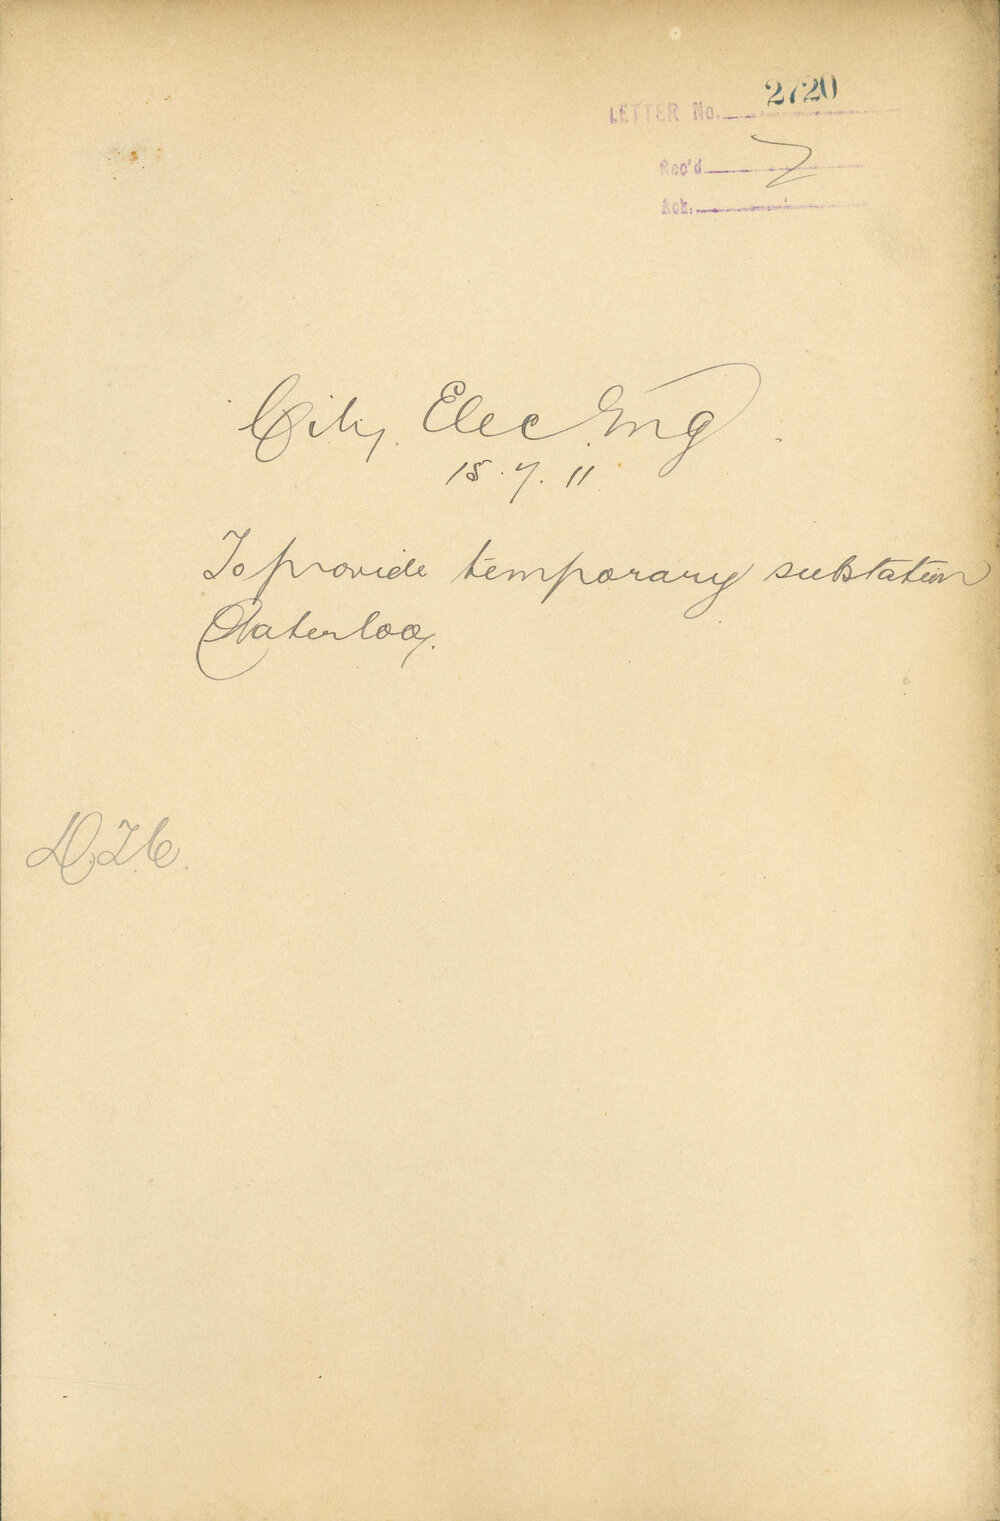 LETTER No. 2720
Rec'd
Ack.
City Elec Eng
15.7.11
To provide temporary substation
Waterloo.